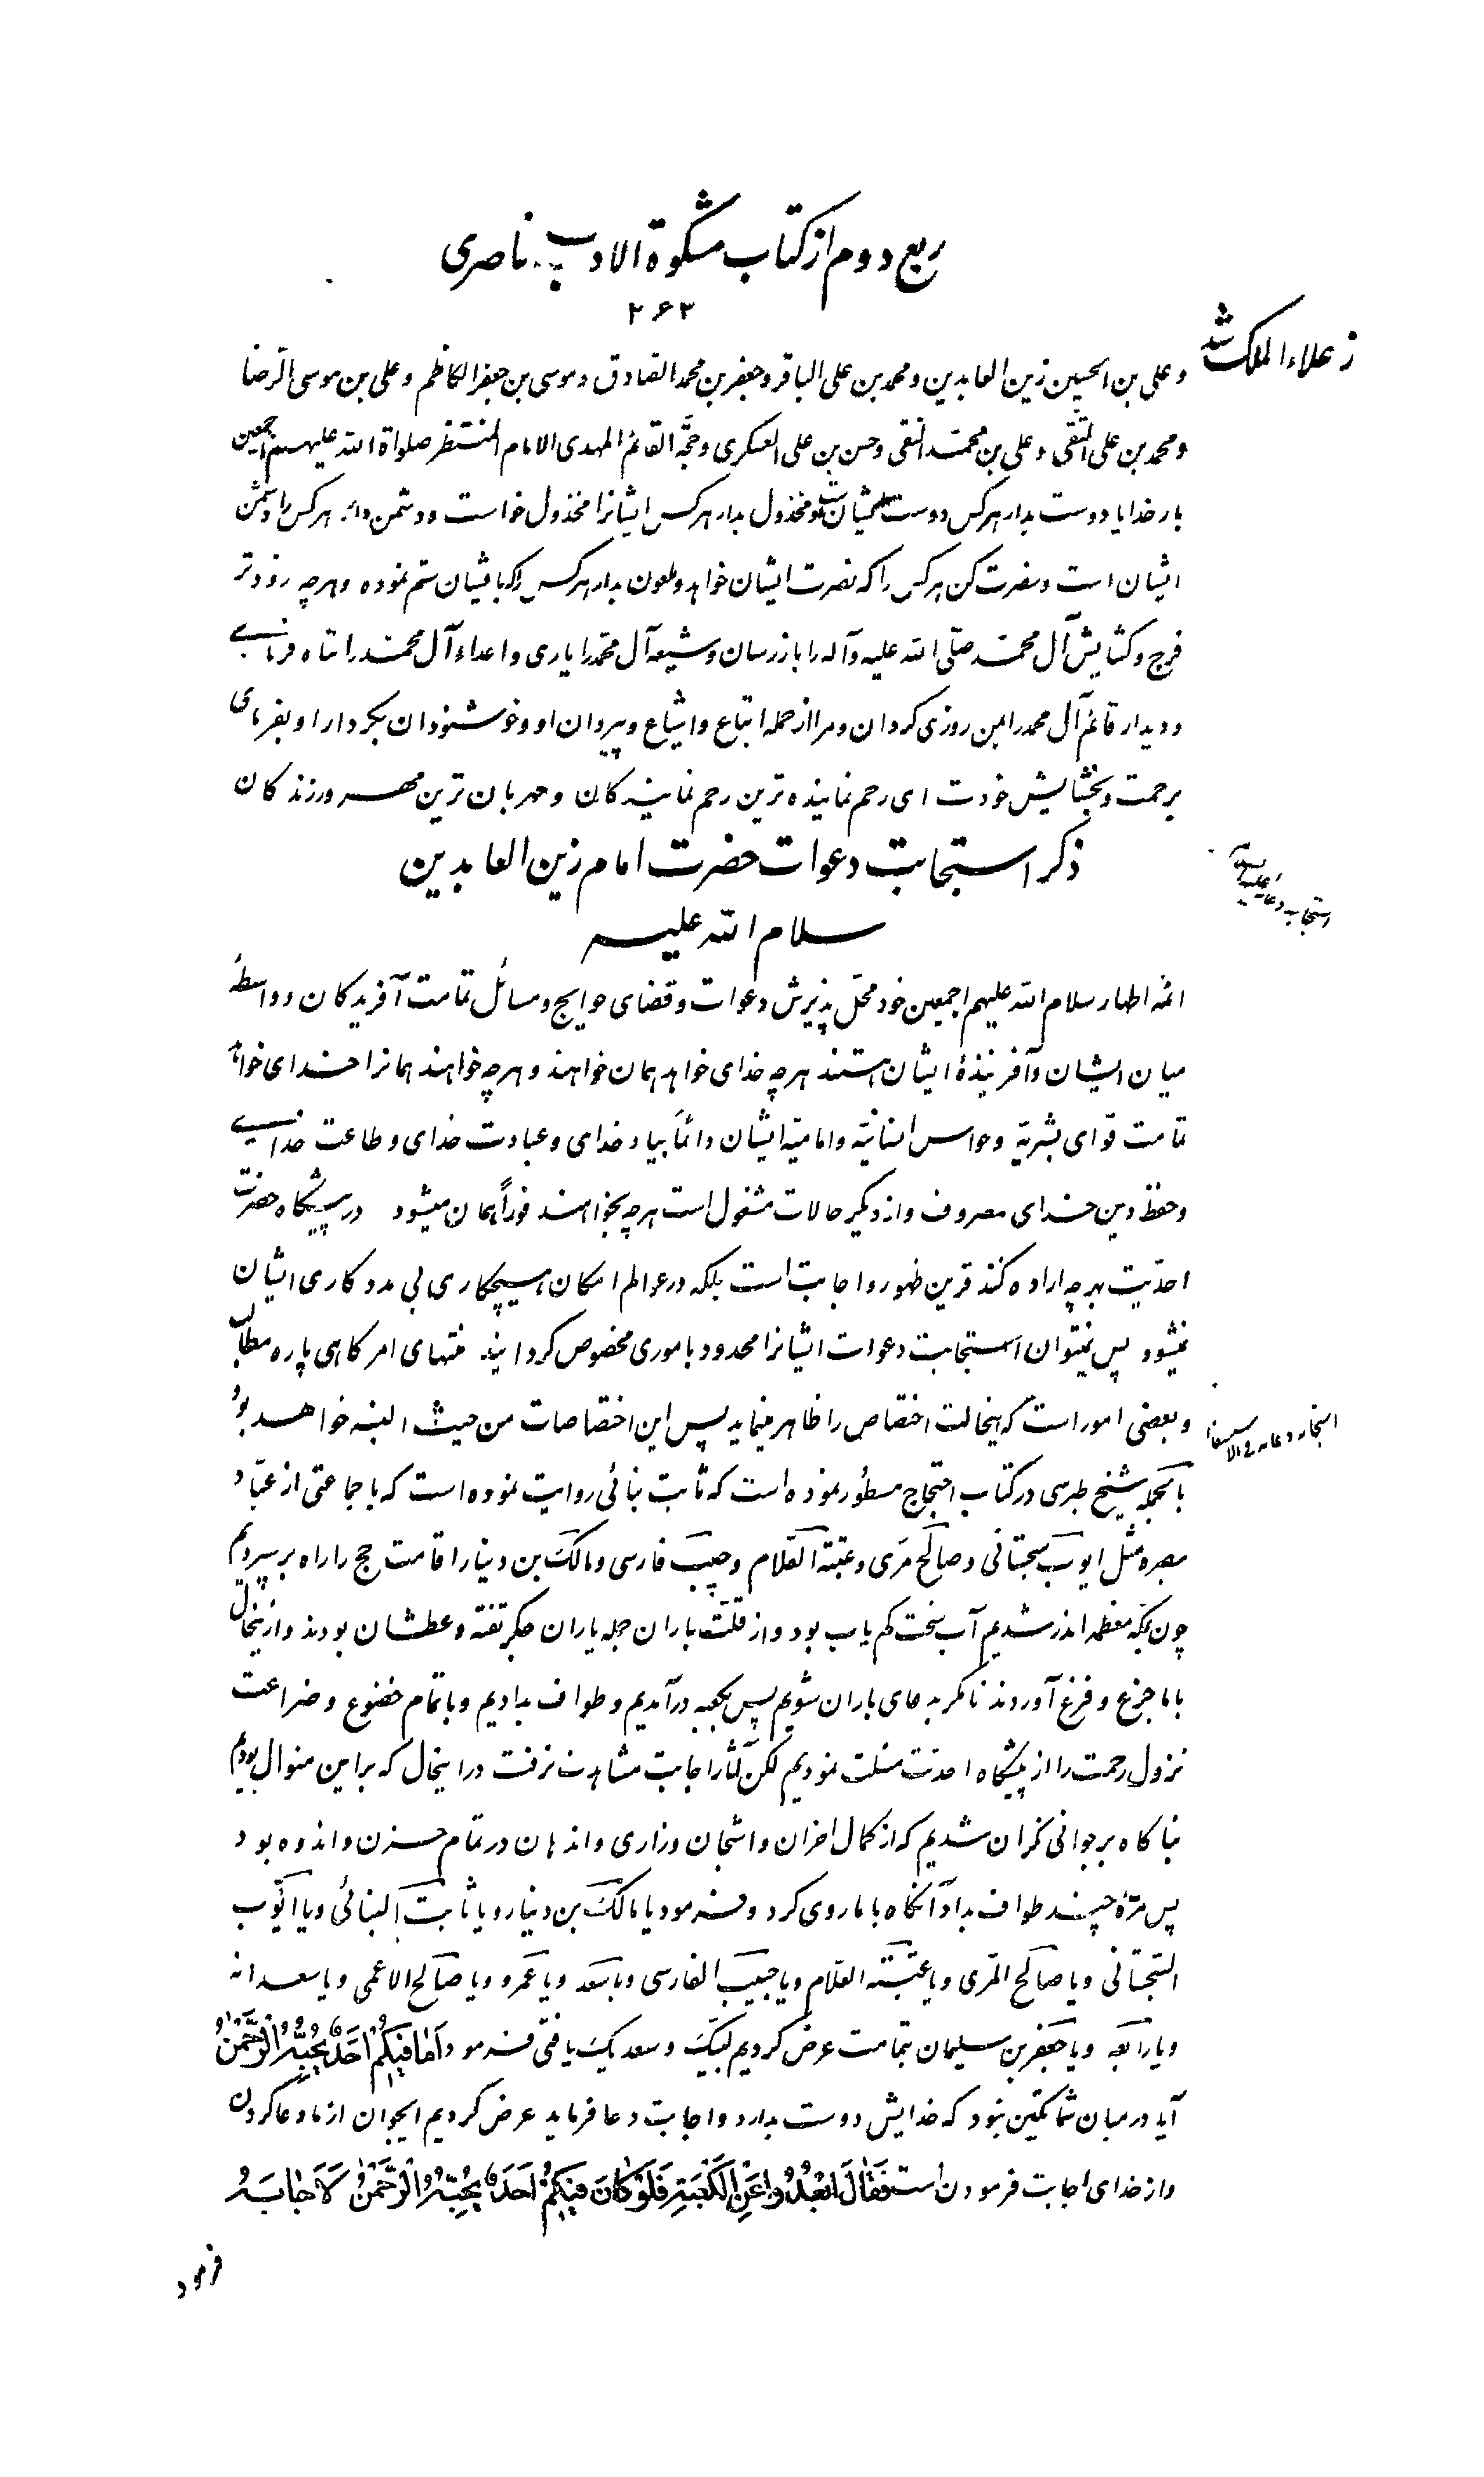 ربع دوم از کتاب مشکوة الادب ناصری
۲۶۳
ز علاء الملک شد
و علی بن الحسین زین العابدین و محمد بن علی الباقر و جعفر بن محمد الصادق و موسی بن جعفر الکاظم و علی بن موسی الرضا
و محمد بن علی التقی و علی بن محمد النقی و حسن بن علی العسکری و حجّة القائم المهدی الامام المنتظر صلواة الله علیهم اجمعین
بار خدایا دوست بدار هر کس دوست ایشان و مخذول بدار هر کس ایشانرا مخذول خواست و دشمن دار هر کس را دشمن
ایشان است و نصرت کن هر کس را که نصرت ایشان خواهد و ملعون بدار هر کس را که باایشان ستم نموده و هر چه زودتر
فرج و گشایش آل محمد صلّی الله علیه و آله را باز رسان و شیعه آل محمد را یاری و اعداء آل محمد را تباه فرمای
و دیدار قائم آل محمد را بمن روزی گردان و مرا از جمله اتباع و اشیاع و پیروان او و خوشنودان بکردار او بفرمای
برحمت و بخشایش خودت ای رحم نماینده ترین رحم نمایندگان و مهربان ترین مهر ورزندگان
ذکر استجابت دعوات حضرت امام زین العابدین
سلام الله علیه
ائمه اطهار سلام الله علیهم اجمعین خود محلّ پذیرش دعوات و قضای حوایج و مسائل تمامت آفریدگان و واسطهٔ
میان ایشان و آفرینندهٔ ایشان هستند هر چه خدای خواهد همان خواهند و هر چه خواهند همانرا خدای خواهد
تمامت قوای بشریّه و حواس انسانیّه و امامیّه ایشان دائماً بیاد خدای و عبادت خدای و طاعت خدای
و حفظ دین خدای مصروف و از دیگر حالات مشغول است هر چه بخواهند فوراً همان میشود در پیشگاه حضرت
احدّیت بهر چه اراده کنند قرین ظهور و اجابت است بلکه در عوالم امکان هیچکاری بی مددکاری ایشان
نمیشود پس نمیتوان استجابت دعوات ایشانرا محدود بأموری مخصوص گردانید منتهای امر گاهی پاره مطالب
و بعضی امور است که اینحالت اختصاص را ظاهر مینماید پس این اختصاصات من حیث البته خواهد بود
بالجمله شیخ طبرسی در کتاب احتجاج مسطور نموده است که ثابت بنائی روایت نموده است که با جماعتی از عبّاد
بصره مثل ایوب سجستانی و صالح مری و عتبة الغلام و حبیب فارسی و مالک بن دینار اقامت حج را راه بر سپردیم
چون بمکه معظمه اندر شدیم آب سخت کم یاب بود و از قلّت باران جمله یاران جگر تفته و عطشان بودند و از اینحال
با ما جزع و فزع آوردند تا مگر بدعای باران شویم پس بکعبه درآمدیم و طواف بدادیم و با تمام خضوع و ضراعت
نزول رحمت را از پیشگاه احدیّت مسئلت نمودیم لکن آثار اجابت مشاهدت نرفت در اینحال که بر این منوال بودیم
بناگاه بر جوانی نگران شدیم که از کمال احزان و اشجان و زاری و اندهان در تمام حزن و اندوه بود
پس مرّهٔ چند طواف بداد آنگاه با ما روی کرد و فرمود یا مالک بن دینار و یا ثابت البنائی و یا ایّوب
السّجستانی و یا صالح المرّی و یا عتبة الغلام و یا حبیب الفارسی و یا سعد و یا عمرو و یا صالح الاعمی و یا سعدانه
و یا رابعه و یا جعفر بن سلیمان بتمامت عرض کردیم لبّیک و سعدیک یا فتی فرمود اَما فیکُمْ اَحَدٌ یُحِبُّهُ الرَّحْمٰنُ
آیا در میان شما یکتن نبود که خدایش دوست بدارد و اجابت دعا فرماید عرض کردیم ایجوان از ما دعا کردن
و از خدای اجابت فرمودن است فَقٰالَ ابْعُدُوا عَنِ الْکَعْبَةِ فَلَوْ کٰانَ فیکُمْ اَحَدٌ یُحِبُّهُ الرَّحْمٰنُ لَاَجٰابَهُ
فرمود